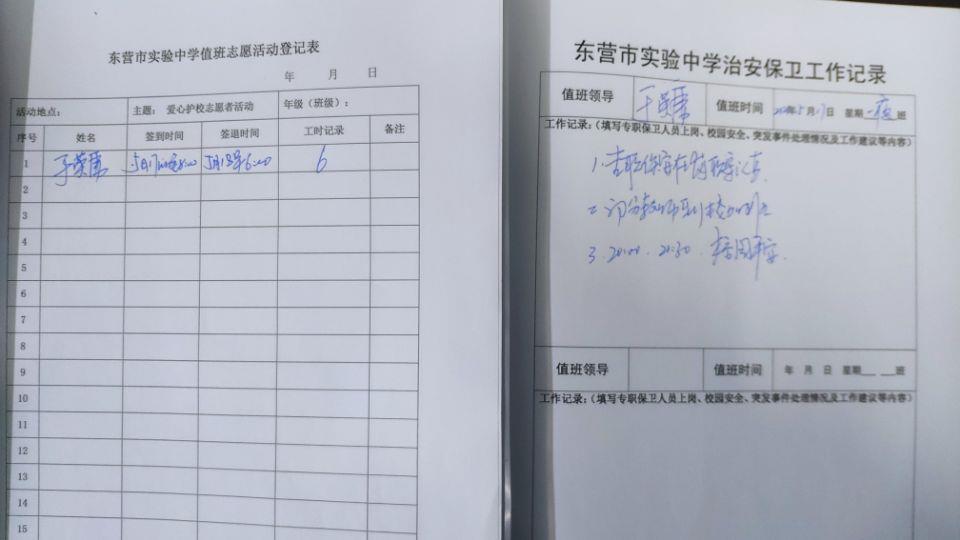 东营市实验中学值班志愿活动登记表
年 月 日
活动地点： 主题： 爱心护校志愿者活动 年级（班级）：
序号 姓名 签到时间 签退时间 工时记录 备注
1 于荣 5月17 5月18 6:00 6
2
3
4
5
6
7
8
9
10
11
12
13
14
15
东营市实验中学治安保卫工作记录
值班领导 于荣 值班时间 年5月17日 星期一夜班
工作记录：（填写专职保卫人员上岗、校园安全、突发事件处理情况及工作建议等内容）
1.
2
3. 20:00. 20:30.
值班领导 值班时间 年 月 日 星期___ ___班
工作记录：（填写专职保卫人员上岗、校园安全、突发事件处理情况及工作建议等内容）